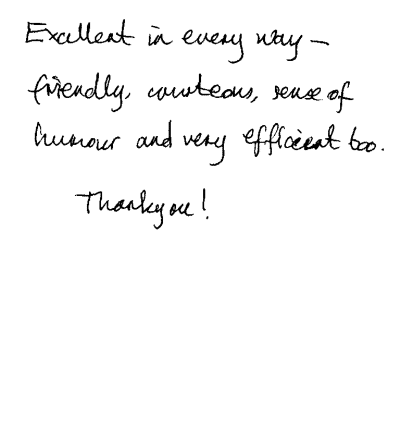 Excellent in every way –
friendly, courteous, sense of
humour and very efficient too.
Thankyou!